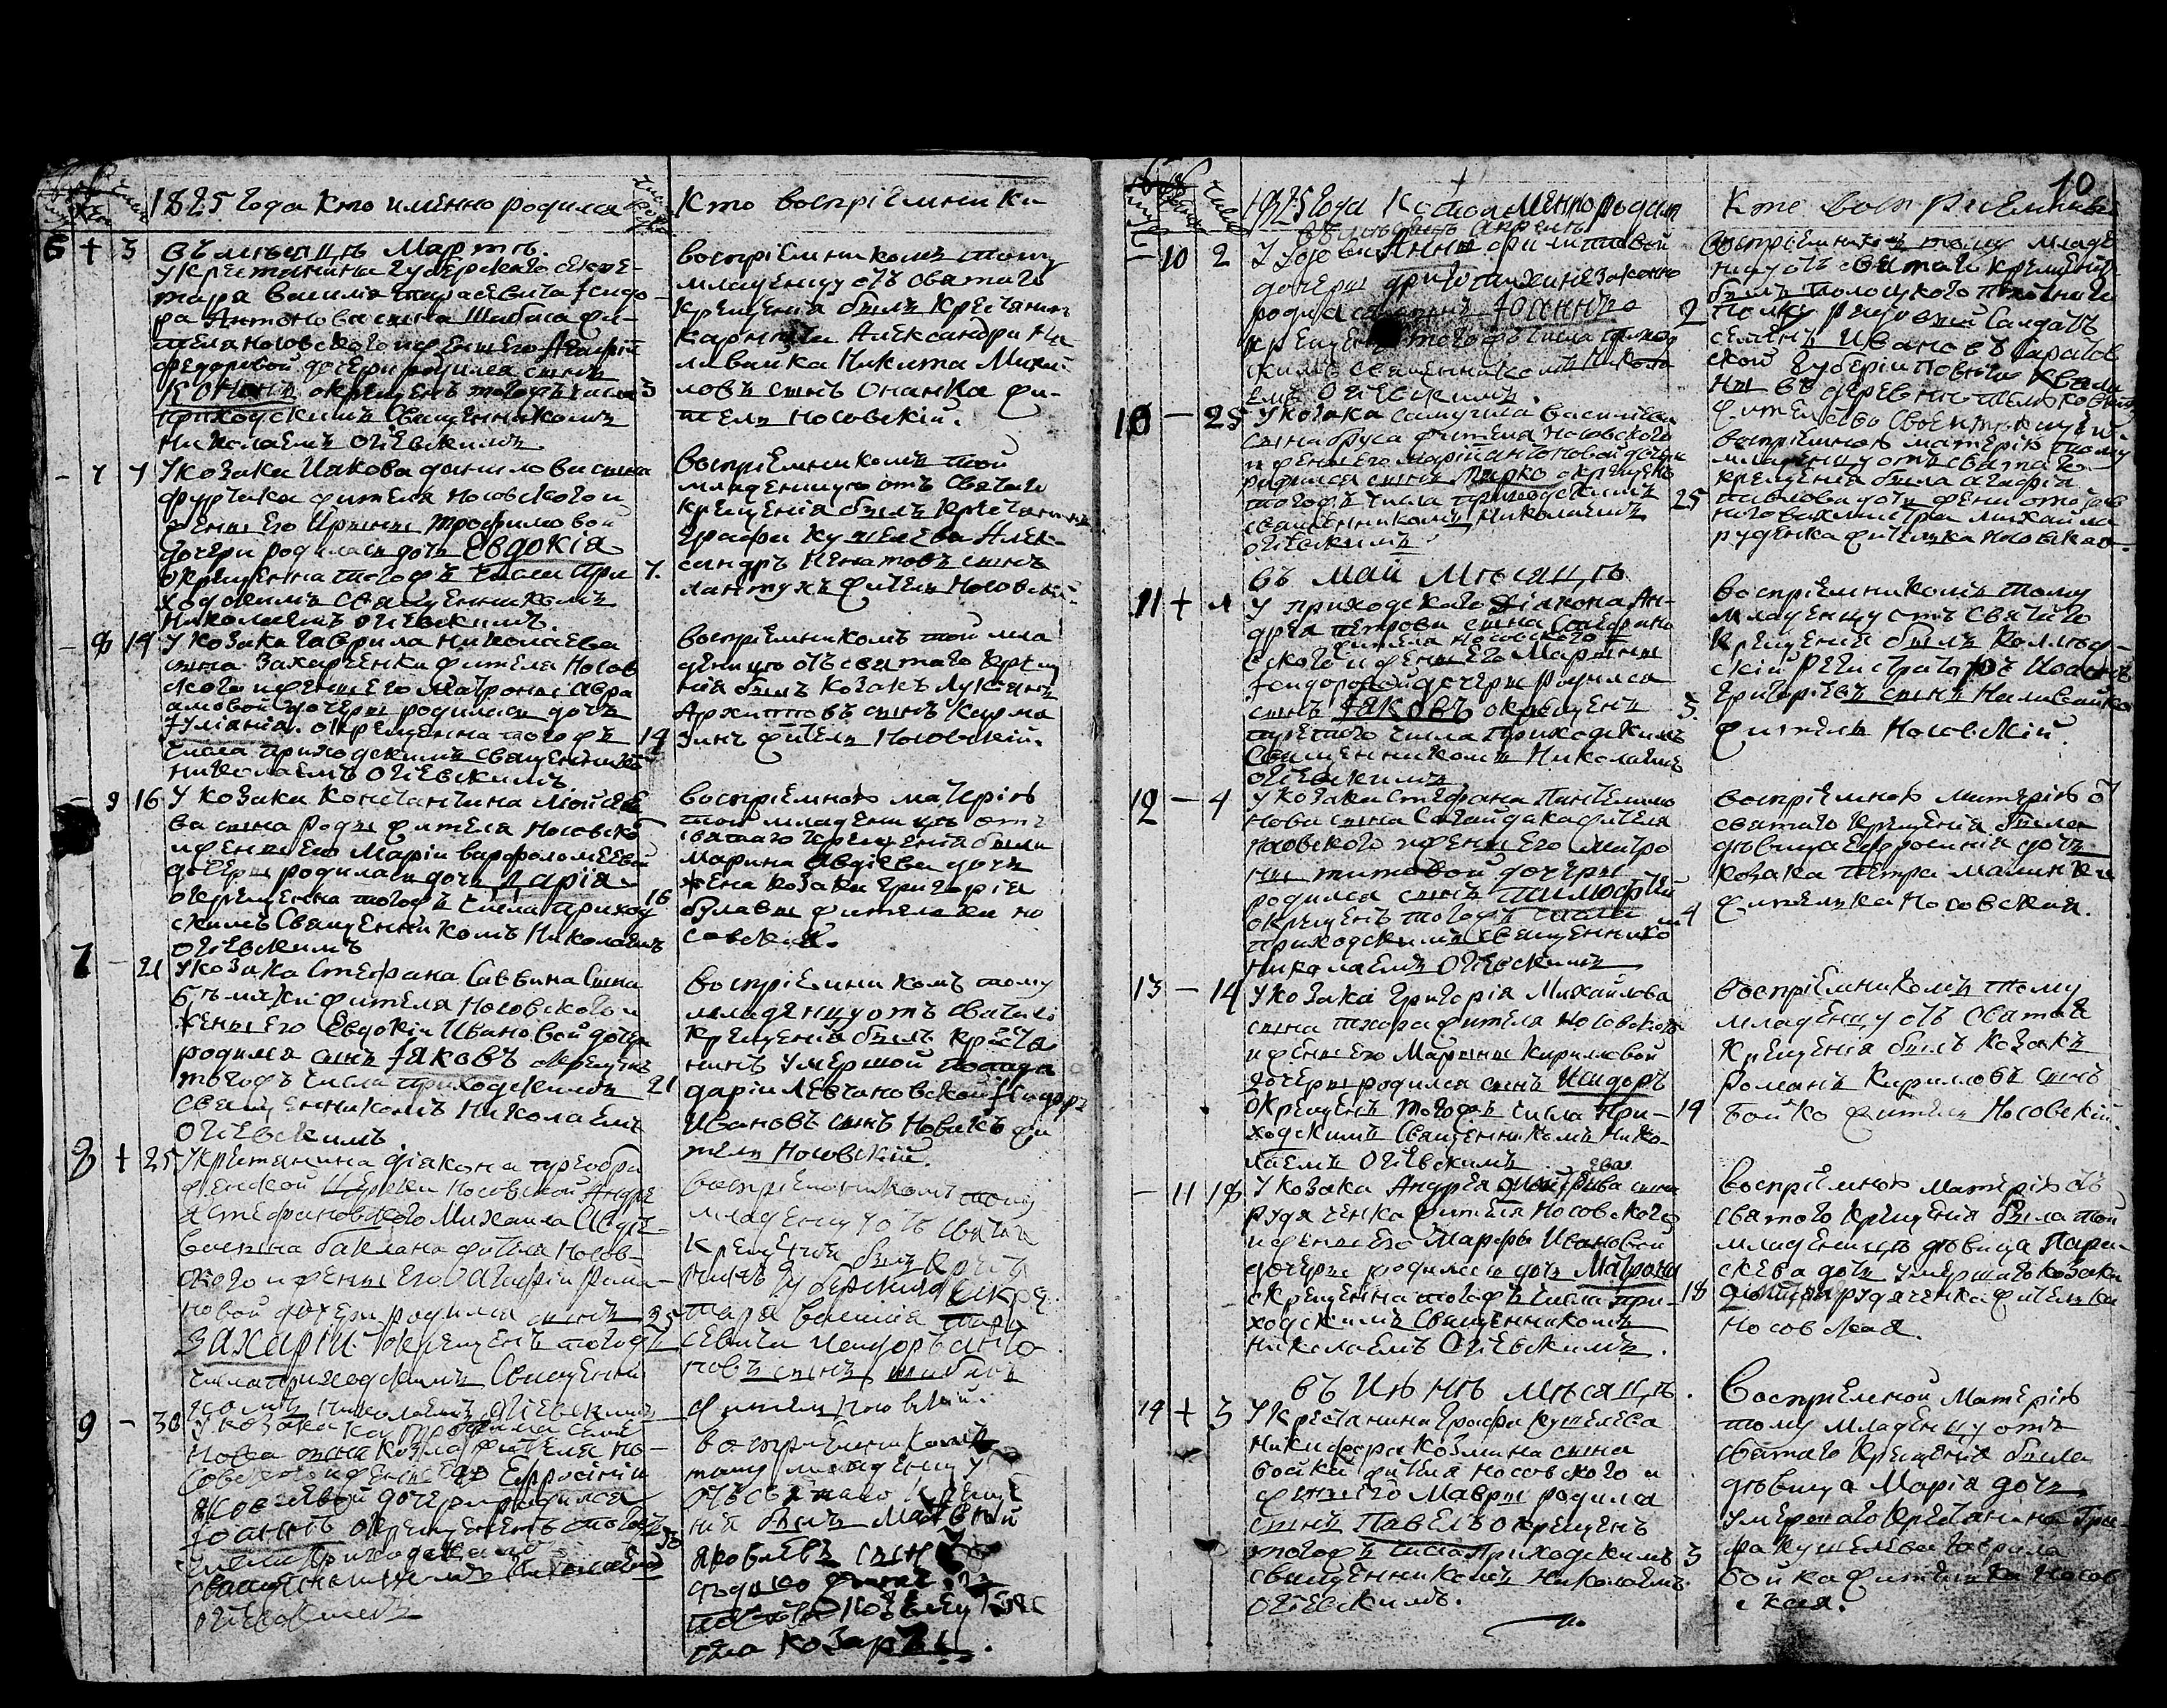 1825 года кто именно родился
Кто воспріемники
6 + 3
въ мњсяцњ Мартњ.
У крестянина губерскаго секре-
таря василія тарасевича
ра Антонова сына Шибаса жи-
теля носовского и жены его Агафіи
федоровой дочери родился сынъ
окрещенъ тогожъ числа 3
приходскимъ Священникомъ
Николаемъ Огіевскимъ
воспріемникомъ тому
младенцу отъ святаго
крещенія былъ крестянинъ
Александри На
ливайка Никита Михаи
ловъ сынъ Онанка жи-
тель Носовскій.
- 7 7
У козака Иякова данилова сына
фурчака жителя Носовского и
жены его Ирины трофимовой
дочери родилась дочь Евдокія
окрещенна тогожъ числа при 7.
ходскимъ священникомъ
Николаемъ Огіевскимъ.
воспріемникомъ той
младеницю отъ Святаго
крещенія былъ крестянинъ
графа кушелева Алек-
сандръ Игнатовъ сынъ
лантухъ житель Носовскій.
- 8 14
У козака гаврила николаева
сына Захарченка жителя Носов
ского и жены его Матроны Авра
амовой дочери родилась дочь
Іуліанія. окрещенна тогожъ 14
числа приходскимъ священнико
николаемъ Огіевскимъ
воспріемникомъ той мла
деницю отъ святаго креще
нія былъ козакъ Лукіянъ
Архиповъ сынъ Карма
зинъ житель Носовскій.
- 9 16
У козака Константина Моисее
ва сына роды жителя Носовско
и жены его Маріи варфоломеевой
дочери родилась дочь Дарія
окрещенна тогожъ числа приход 16
скимъ Священникомъ Николаемъ
Огіевскимъ
воспріемною матерію
той младеницњ отъ
святаго крещенія была
марина Авдіева дочь
жена козака григорія
булавы жителька но
совская.
7 - 21
У козака Стефана Саввина Сына
жителя Носовского и
жены его Евдокіи Ивановой дочери
родился сынъ Іаковъ окрещенъ
тогожъ числа приходскимъ 21
священникомъ Николаемъ
Огіевскимъ
воспріемникомъ тому
младенцу отъ святаго
крещенія былъ крестя
нинъ умершой
даріи Левчановской Исидоръ
Ивановъ сынъ Новикъ жи
тель Носовскій.
8 + 25
У крестянина діакона преобра
женской церкви Носовской Андре
я стефановского Михаила Авдіе-
ваго сына баклана жителя носов-
ского и жены его Агафіи рома-
новой дочери родился сынъ 25
Захарій. окрещенъ тогожъ
числа приходскимъ Священни
комъ николаемъ Огіевскимъ
воспріемникомъ тому
младенцу отъ святаго
крещенія былъ крестя
нинъ губерскаго секре
таря василія тара
севича Исидоръ анто
новъ сынъ
житель носовскій.
9 - 30
У козака семе
нова сына козла жителя но-
совского и жены его Ефросиніи
дочери родился
Іоаннъ окрещененъ тогожъ 30
числа приходскимъ
священникомъ Николаемъ
Огіевскимъ
воспріемникомъ
тому младенцу
отъ святаго креще
нія былъ Матвњй
яковлевъ сынъ
козелец
села козаръ.
10
1825 года Кто именно родился
Кто воспріемники
въ мњсяцњ Апрелњ
- 10 2
У удовы Анны филиповой
дочери незаконно
родился сынъ Іоаннъ 2
крещенъ тогожъ числа приход
скимъ священникомъ Никола
емъ Огіевскимъ.
воспріемникомъ тому младе
нцу отъ святаго крещенія
былъ полоцкого пњхотнаго
полку рядовый Салдатъ
семенъ Ивановъ саратов
ской губеріи
10 - 25
У козака самуила василіева
сына бруса жителя Носовского
и жены его Маріи антоновой дочери
родился сынъ Марко окрещенъ
тогожъ числа приходскимъ 25
священникомъ Николаемъ
Огіевскимъ
воспріемною матерію тому
младенцу отъ святаго
крещенія была агафія
павлова дочь жена
Михаила
руденка жителька Носовская.
въ Май Мњсяцњ
11 + 1
У приходского діакона Ан-
дрея петрова сына Стефано
жителя носовского
вского и жены его Марины
Ісидоровой дочери родился
сынъ Іаковъ окрещенъ 3.
третого числа приходскимъ
Священникомъ Николаемъ
Огіевскимъ
воспріемникомъ тому
младенцу отъ Святаго
крещенія былъ коллеж-
скій регистраторъ Иоаннъ
григоріевъ сынъ Наливайко
житель Носовскій.
12 - 4
У козака стефана Пантелимо
нова сына Сагайдака жителя
носовского и жены его Матро
ны титовой дочери
родился сынъ тимофей
окрещенъ тогожъ числа 4
приходскимъ священнико
Николаемъ Огіевскимъ
воспріемною матерію от
святаго крещенія была
дњвица Ефросинія дочь
козака петра малинки
жителька Носовская.
13 - 14
У козака григорія Михайлова
сына тхора жителя носовского
и жены его Марины Кириловой
дочери родился сынъ Исидоръ
окрещенъ тогожъ числа при- 14
ходскимъ Священникомъ Нико-
лаемъ Огіевскимъ
воспріемникомъ тому
младенцу отъ святаго
крещенія былъ козакъ
романъ Кирилловъ сынъ
бойко житель Носовскій.
- 11 18
У козака Андрея сына
рудяченка жителя Носовского
и жены его Марфы Ивановой
дочери родилась дочь Матрона
окрещенна тогожъ числа при- 18
ходскимъ Священникомъ
николаемъ Огіевскимъ.
воспріемною матерію отъ
святого крещенія была той
младеницњ дњвица Пара-
скева дочь умершаго козака
рудяченка жителька
Носовская.
въ Июнњ Мњсяцњ.
14 + 3
У крестянина графа кушелева
никифора козмина сына
бойка жителя носовского и
жены его Мавры родился
сынъ Павелъ окрещенъ
тогожъ числа приходскимъ 3
священникомъ Николаемъ
огіевскимъ.
Воспріемной матерію
тому младенцу отъ
святаго крещенія была
дњвица Марія дочь
умершаго крестянина гра-
фа кушелева гаврила
бойка жителька Носов
ская.